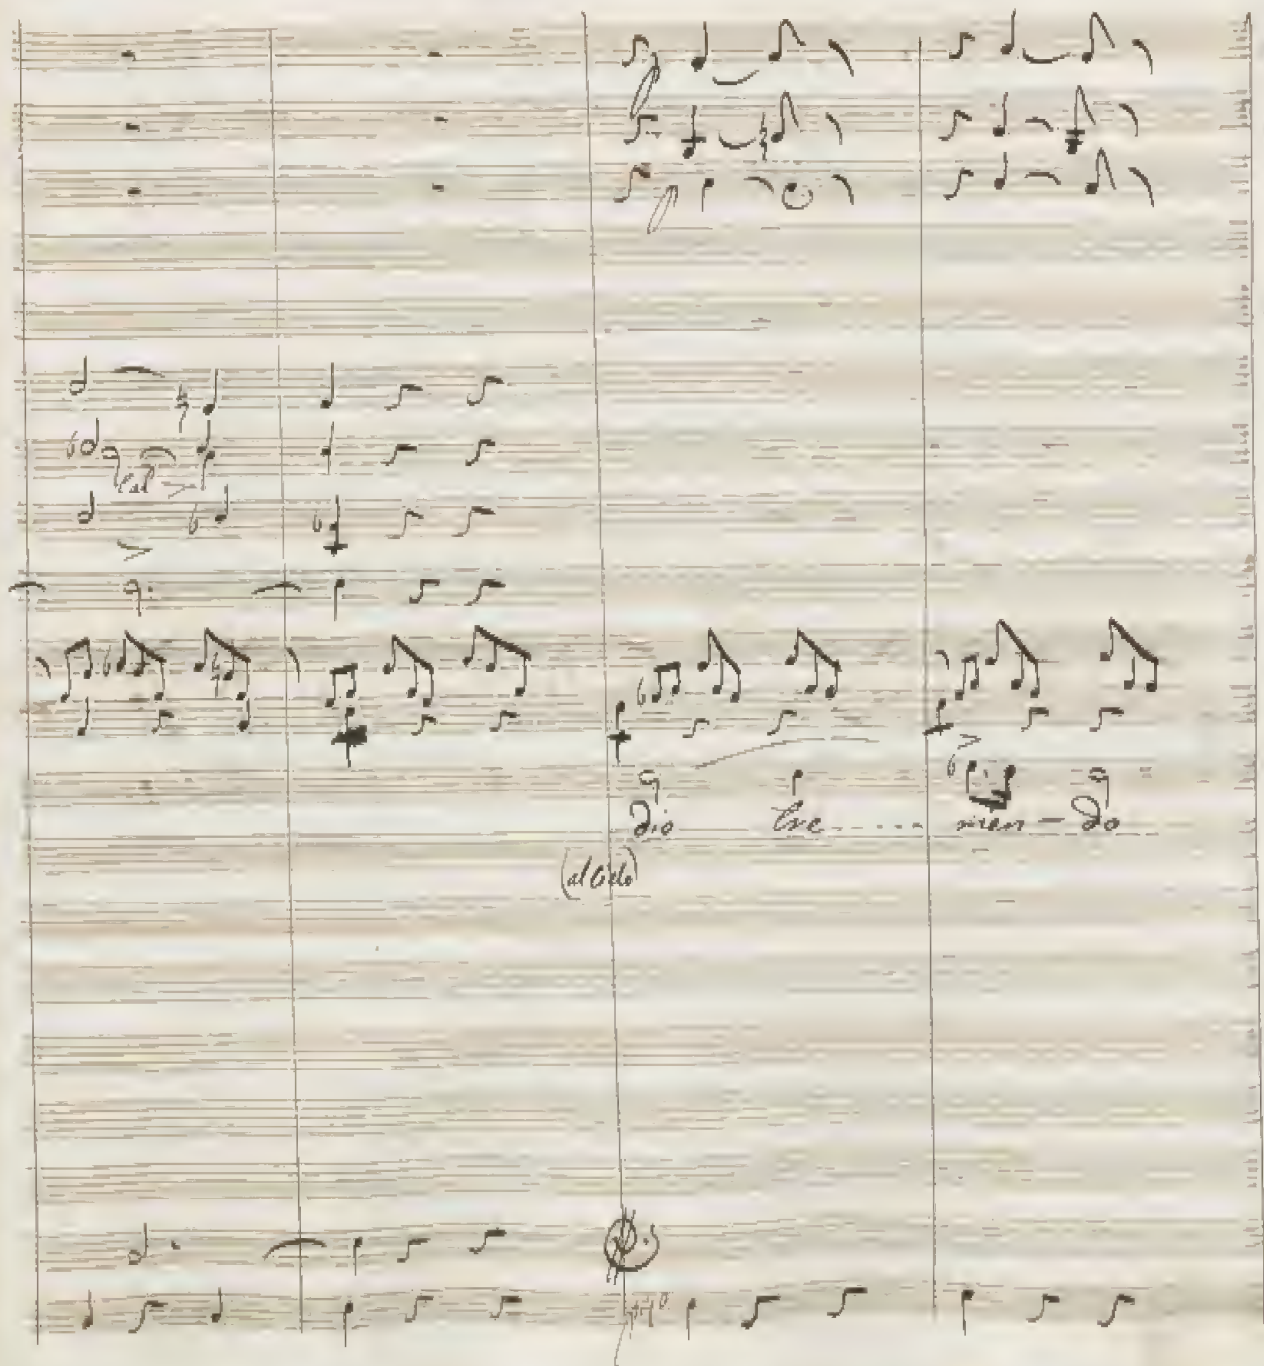 cal
Dio tre - - - - men - do
(al Cielo)